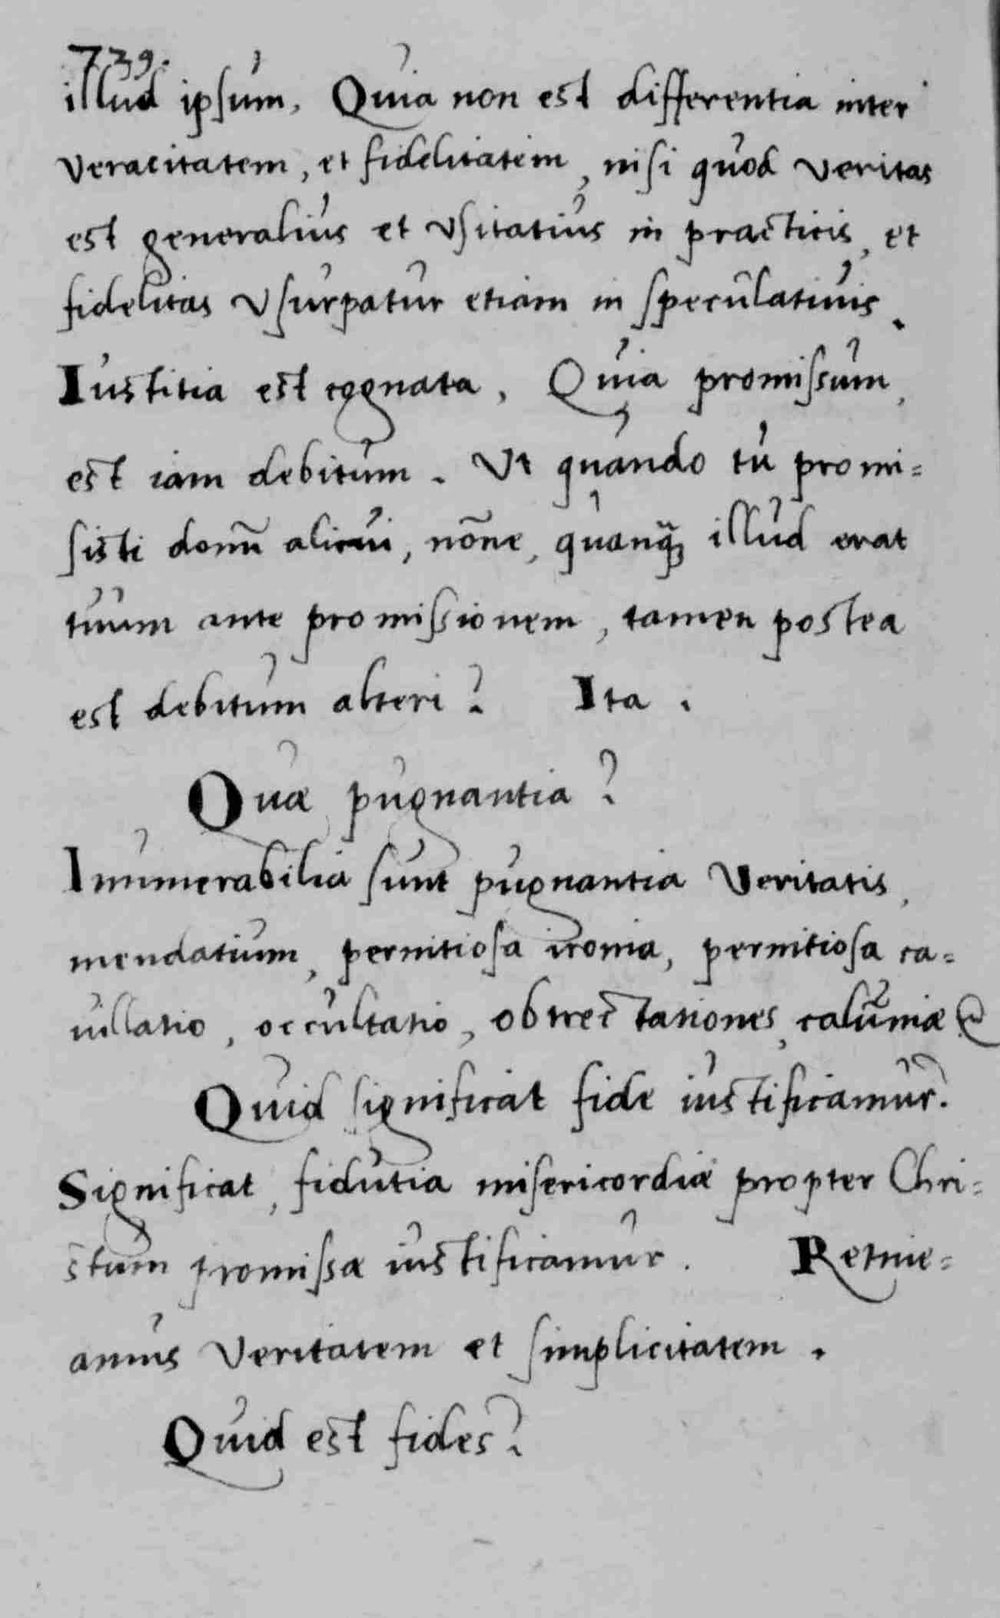 739.
illud ipsum, Quia non est differentia inter
veracitatem, et fidelitatem, nisi quod veritas
est generalius et vsitatius in practicis, et
fidelitas vsurpatur etiam in speculatiuis.
Iustitia est cognata, Quia promissum,
est iam debitum. Vt quando tu promi=
sisti donū alicui, nōne, quanq̃ illud erat
tuum ante promissionem, tamen postea
est debitum alteri? Ita.
Quæ pugnantia?
Inumerabilia sunt pugnantia veritatis,
mendatium, pernitiosa ironia, pernitiosa ca=
uillatio, occultatio, obtrectationes, calum̄niæ &
Quid significat fide iustificamur?
Significat, fidutia misericordiæ propter Chri=
stum promissæ iustificamur. Retine=
amus veritatem et simplicitatem.
Quid est fides?